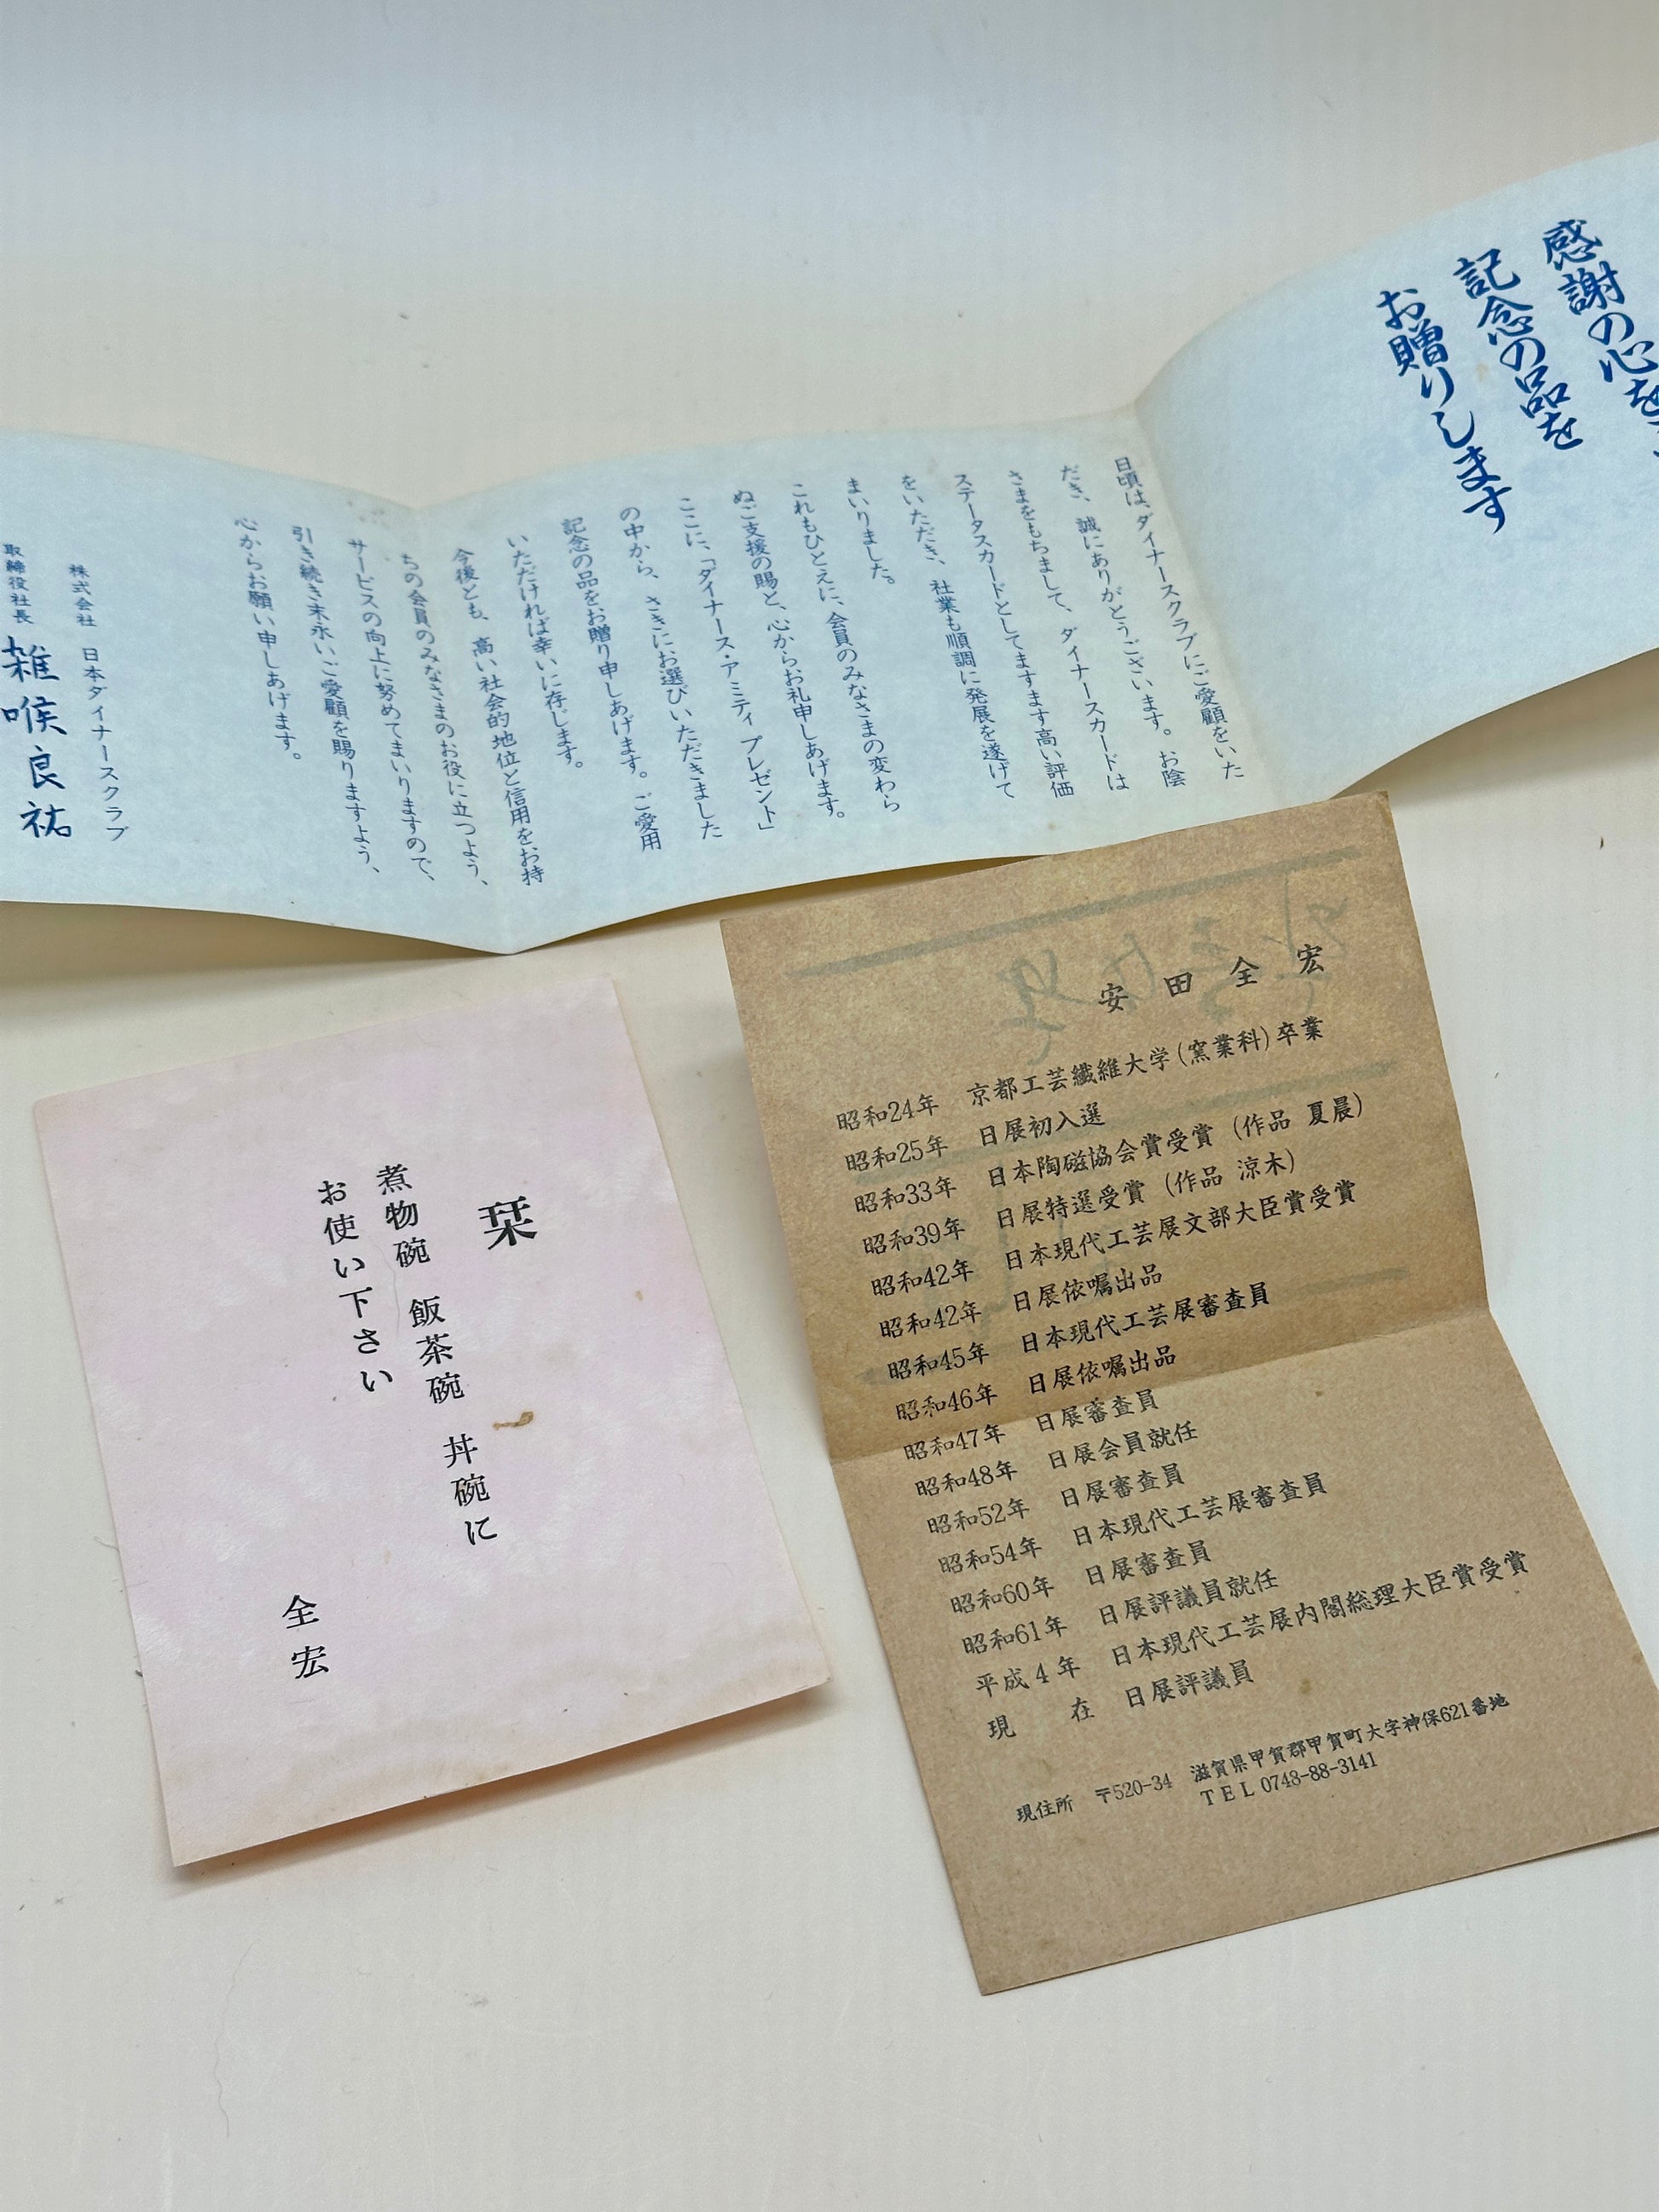 感謝の心を
記念の品を
お贈りします
日頃は、ダイナースクラブにご愛顧をいた
だき、誠にありがとうございます。お陰
さまをもちまして、ダイナースカードは
ステータスカードとしてますます高い評価
をいただき、社業も順調に発展を遂げて
まいりました。
これもひとえに、会員のみなさまの変わら
ぬご支援の賜と、心からお礼申しあげます。
ここに、「ダイナース・アミティ プレゼント」
の中から、さきにお選びいただきました
記念の品をお贈り申しあげます。ご愛用
いただければ幸いに存じます。
今後とも、高い社会的地位と信用をお持
ちの会員のみなさまのお役に立つよう、
サービスの向上に努めてまいりますので、
引き続き末永いご愛顧を賜りますよう、
心からお願い申しあげます。
株式会社 日本ダイナースクラブ
取締役社長 雑喉良祐
栞
煮物碗 飯茶碗 丼碗に
お使い下さい
全宏
安田全宏
昭和24年 京都工芸繊維大学(窯業科)卒業
昭和25年 日展初入選
昭和33年 日本陶磁協会賞受賞(作品 夏晨)
昭和39年 日展特選受賞(作品 涼木)
昭和42年 日本現代工芸展文部大臣賞受賞
昭和42年 日展依嘱出品
昭和45年 日本現代工芸展審査員
昭和46年 日展依嘱出品
昭和47年 日展審査員
昭和48年 日展会員就任
昭和52年 日展審査員
昭和54年 日本現代工芸展審査員
昭和60年 日展審査員
昭和61年 日展評議員就任
平成4年 日本現代工芸展内閣総理大臣賞受賞
現在 日展評議員
現住所 〒520-34 滋賀県甲賀郡甲賀町大字神保621番地
TEL 0748-88-3141